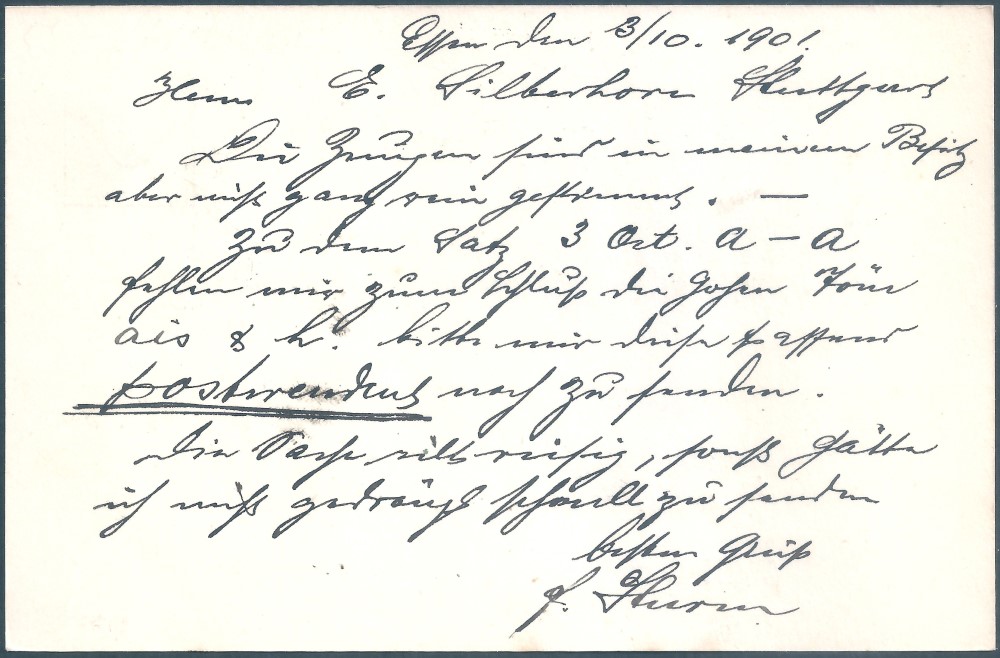 Essen den 3/10. 1901.
Herrn E. Silberhorn Stuttgart
Die Zungen sind in meinem Besitz
aber nicht ganz rein gestimmt. —
Zu dem Satz 3 Oct. A – A
fehlen mir zum Schluß die hohen Töne
ais & h. bitte mir diese passend
postwendend noch zu senden.
Die Sache eilt riesig, sonst hätte
ich nicht gedrängt schnell zu senden
besten Gruß
F. Sturm